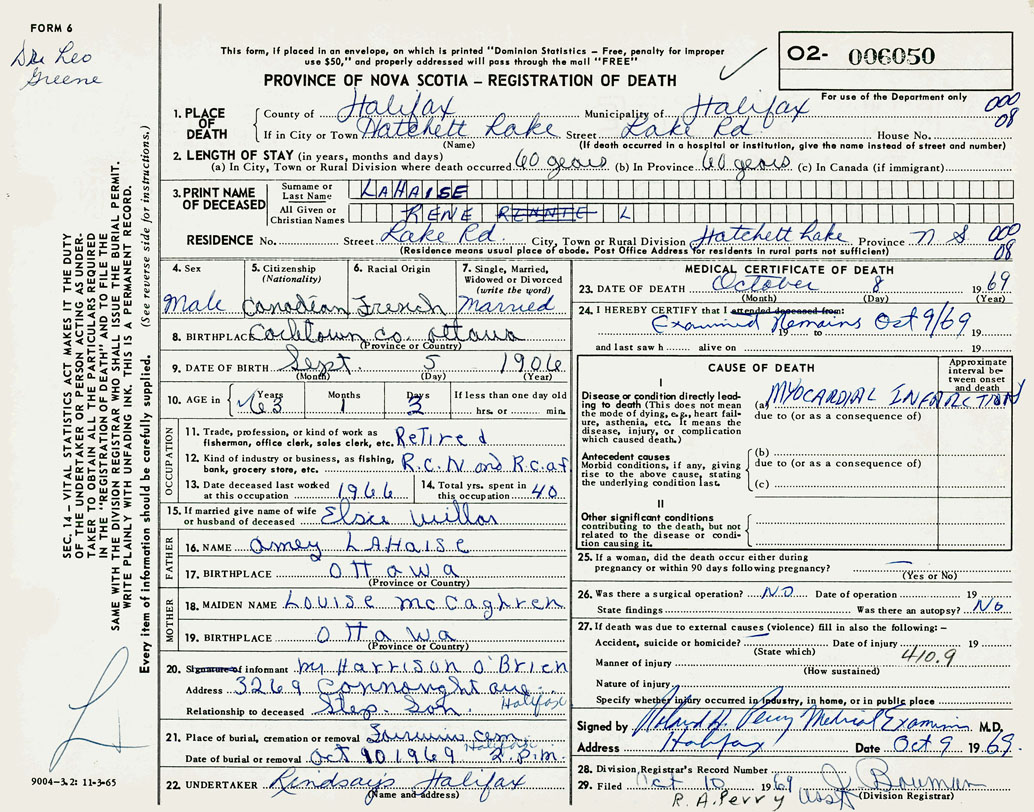 FORM 6
Dr. Leo
Greene
This form, if placed in an envelope, on which is printed "Dominion Statistics – Free, penalty for improper
use $50," and properly addressed will pass through the mail "FREE"
PROVINCE OF NOVA SCOTIA – REGISTRATION OF DEATH
02- 006050
For use of the Department only
1. PLACE OF DEATH
County of Halifax Municipality of Halifax 000
If in City or Town Hatchett Lake Street Lake Rd House No. 08
(Name) (If death occurred in a hospital or institution, give the name instead of street and number)
2. LENGTH OF STAY (in years, months and days)
(a) In City, Town or Rural Division where death occurred 60 years (b) In Province 60 years (c) In Canada (if immigrant)
3. PRINT NAME OF DECEASED
Surname or Last Name LAHAISE
All Given or Christian Names RENE RENNIE L
RESIDENCE No. Street Lake Rd. City, Town or Rural Division Hatchett Lake Province N S 000
(Residence means usual place of abode. Post Office Address for residents in rural parts not sufficient) 08
4. Sex Male
5. Citizenship (Nationality) Canadian
6. Racial Origin French
7. Single, Married, Widowed or Divorced (write the word) Married
8. BIRTHPLACE co. ottawa
(Province or Country)
9. DATE OF BIRTH Sept. 5 1906
(Month) (Day) (Year)
10. AGE in Years 63 Months 1 Days 3 If less than one day old hrs. or min.
OCCUPATION
11. Trade, profession, or kind of work as fisherman, office clerk, sales clerk, etc. Retired
12. Kind of industry or business, as fishing, bank, grocery store, etc. R.C.N and R.C.af
13. Date deceased last worked at this occupation 1966
14. Total yrs. spent in this occupation 40
15. If married give name of wife or husband of deceased Elsie Willar
FATHER
16. NAME Amey LAHaise
17. BIRTHPLACE Ottawa
(Province or Country)
MOTHER
18. MAIDEN NAME Louise McCaghren
19. BIRTHPLACE Ottawa
(Province or Country)
20. Signature of informant Mr Harrison O'Brien
Address 3269 Connaught ave. Halifax
Relationship to deceased Step. Son.
21. Place of burial, cremation or removal Fairview cem Halifax
Date of burial or removal Oct 10 1969 2. p.m.
22. UNDERTAKER Lindsay's Halifax
(Name and address)
MEDICAL CERTIFICATE OF DEATH
23. DATE OF DEATH October 8 1969
(Month) (Day) (Year)
24. I HEREBY CERTIFY that I attended deceased from:
Examined Remains Oct 9/69
19 to 19
and last saw h alive on 19
CAUSE OF DEATH
Approximate interval between onset and death
I
Disease or condition directly leading to death (This does not mean the mode of dying, e.g., heart failure, asthenia, etc. It means the disease, injury, or complication which caused death.)
(a) MYOCARDIAL INFARCTION
due to (or as a consequence of)
Antecedent causes
Morbid conditions, if any, giving rise to the above cause, stating the underlying condition last.
(b)
due to (or as a consequence of)
(c)
II
Other significant conditions
contributing to the death, but not related to the disease or condition causing it.
25. If a woman, did the death occur either during pregnancy or within 90 days following pregnancy? —
(Yes or No)
26. Was there a surgical operation? NO Date of operation 19
State findings Was there an autopsy? No
27. If death was due to external causes (violence) fill in also the following: –
Accident, suicide or homicide? — Date of injury 19
(State which) 410.9
Manner of injury
(How sustained)
Nature of injury
Specify whether injury occurred in industry, in home, or in public place
Signed by Roland H. Perry Medical Examiner M.D.
Address Halifax Date Oct 9 1969.
28. Division Registrar's Record Number
29. Filed Oct 10 1969 J Bauman
R. A. Perry asst (Division Registrar)
SEC. 14 – VITAL STATISTICS ACT MAKES IT THE DUTY
OF THE UNDERTAKER OR PERSON ACTING AS UNDER-
TAKER TO OBTAIN ALL THE PARTICULARS REQUIRED
IN THE "REGISTRATION OF DEATH" AND TO FILE THE
SAME WITH THE DIVISION REGISTRAR WHO SHALL ISSUE THE BURIAL PERMIT.
WRITE PLAINLY WITH UNFADING INK. THIS IS A PERMANENT RECORD.
Every item of information should be carefully supplied. (See reverse side for instructions.)
9004-3.2: 11-3-65